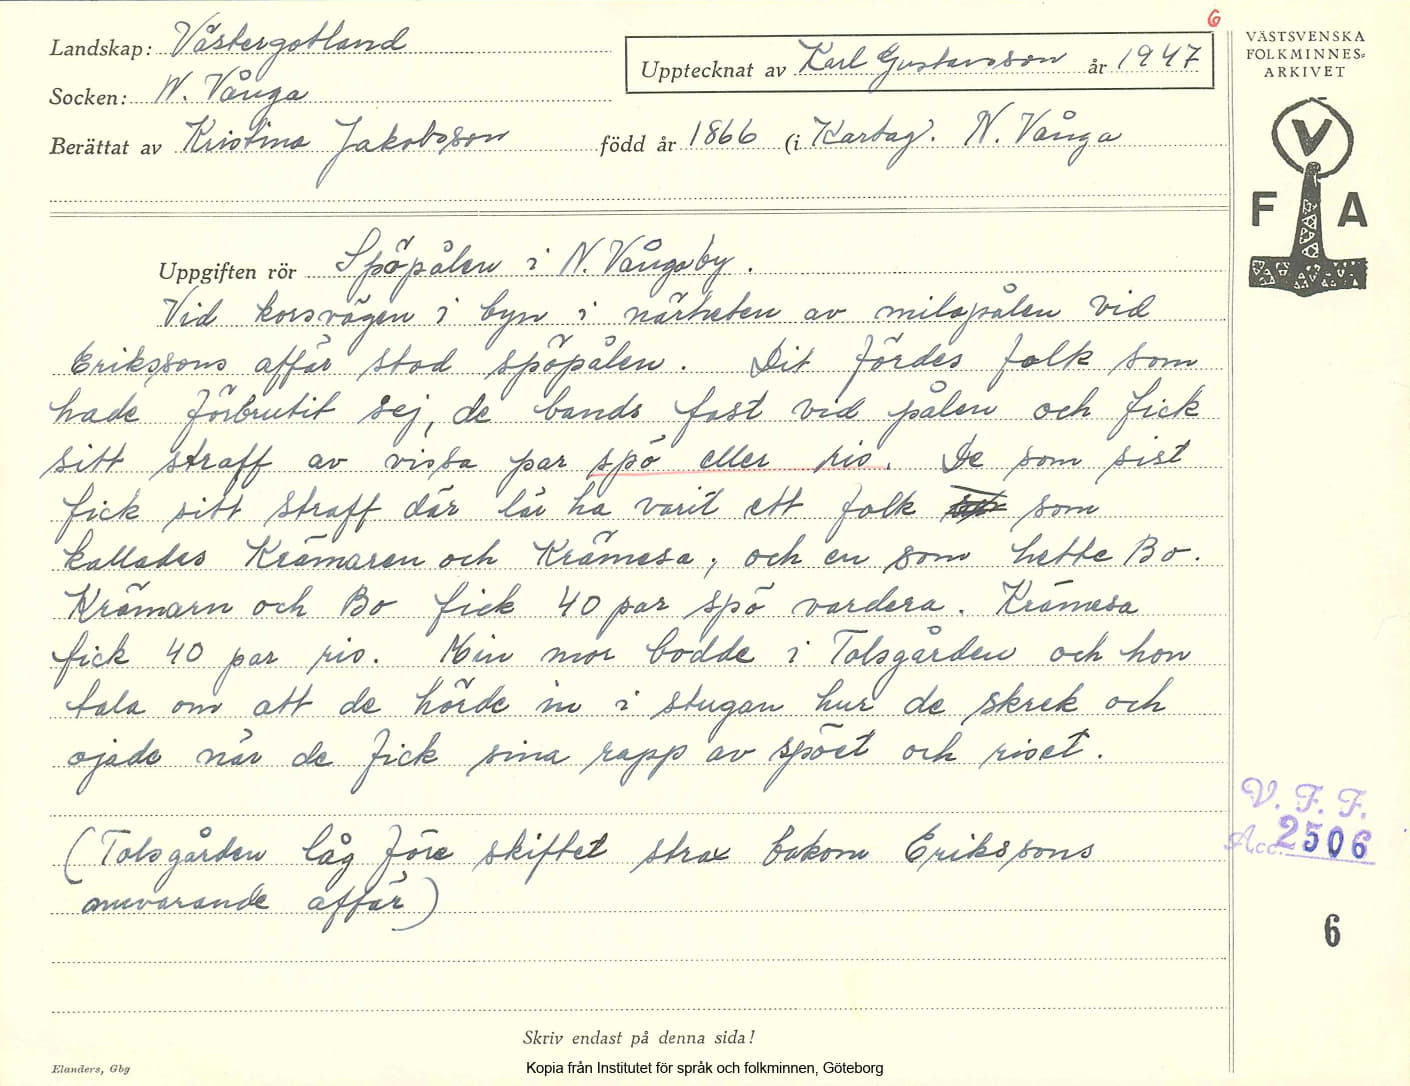 6
Landskap: Västergötland
Socken: N. Vånga
Berättat av Kristina Jakobsson född år 1866 (i Kartag). N. Vånga
Upptecknat av Karl Gustavsson år 1947
VÄSTSVENSKA
FOLKMINNES-
ARKIVET
V
F A
Uppgiften rör Spöpålen i N. Vångaby.
Vid korsvägen i byn i närheten av milapålen vid
Erikssons affär stod spöpålen. Dit fördes folk som
hade förbrutit sej, de bands fast ved pålen och fick
sitt straff av vissa par spö eller ris. De som sist
fick sitt straff där lär ha varit ett folk som
kallades Krämaren och Krämesa, och en som hette Bo.
Krämarn och Bo fick 40 par spö vardera. Krämesa
fick 40 par ris. Min mor bodde i Tolsgården och hon
tala om att de hörde in i stugan hur de skrek och
ojade när de fick sina rapp av spöet och riset.
(Tolsgården låg före skiftet strax bakom Erikssons
nuvarande affär)
V. F. F.
Acc. 2506
6
Skriv endast på denna sida!
Elanders, Gbg
Kopia från Institutet för språk och folkminnen, Göteborg